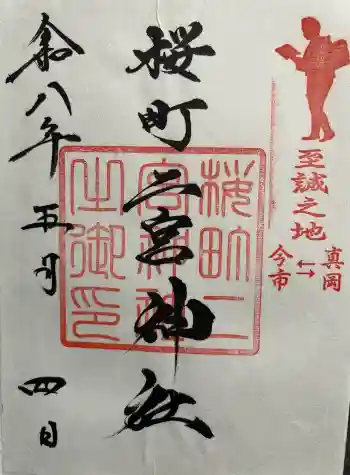 至誠之地
真岡
↔
今市
桜町二宮神社
桜町二
宮神社
之御印
令八年五月四日